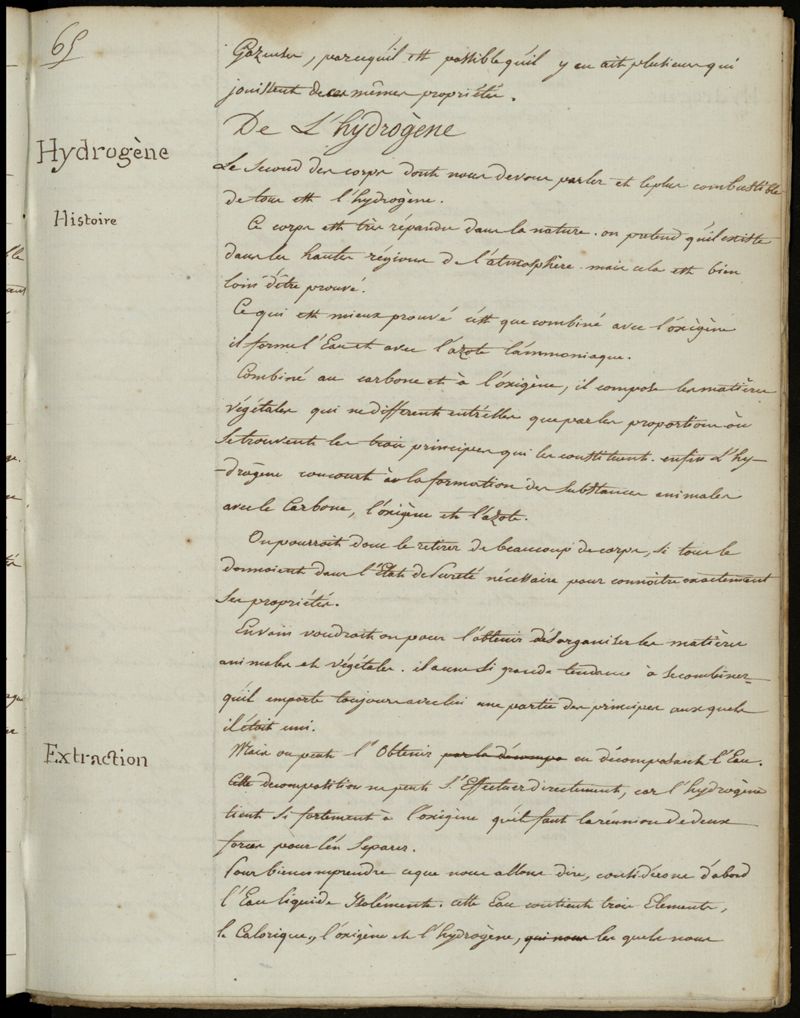 65
Gazeuses, parcequ'il est possible qu'il y en ait plusieurs qui
jouissent de ces mêmes propriétés.
De L'hydrogène
Hydrogène
Le Second des corps dont nous devons parler et le plus combustible
de tous est l'hydrogène.
Histoire
Ce corps est très répandu dans la nature. on prétend qu'il existe
dans les hautes régions de l'atmosphère. mais cela est bien
loin d'être prouvé.
Ce qui est mieux prouvé c'est que combiné avec l'oxigène
il forme l'Eau et avec l'azote l'ammoniaque.
Combiné au carbone et à l'oxigène, il compose les matières
végétales qui ne diffèrent entr'elles que par les proportions où
Se trouvent les trois principes qui les constituent. enfin L'hy-
-drogène concourt à la formation des Substances animales
avec le Carbone, l'oxigène et l'azote.
On pourroit donc le retirer de beaucoup de corps, si tous le
donnoient dans l'État de Pureté nécessaire pour connoître exactement
Ses propriétés.
Envain voudroit on pour l'obtenir désorganiser les matières
animales et végétales. il a une si grande tendance à Se combiner
qu'il emporte toujours avec lui une partie des principes auxquels
il étoit uni.
Extraction
Mais on peut l'Obtenir par la décompo en décomposant l'Eau.
Cette décomposition ne peut S'Effectuer directement, car l'hydrogène
tient Si fortement à l'oxigène qu'il faut la réunion de deux
forces pour l'en Séparer.
Pour bien comprendre ce que nous allons dire, considérons d'abord
l'Eau liquide Isolément. cette Eau contient trois Elements,
le Calorique, l'oxigène et l'hydrogène, qui nous les quels nous